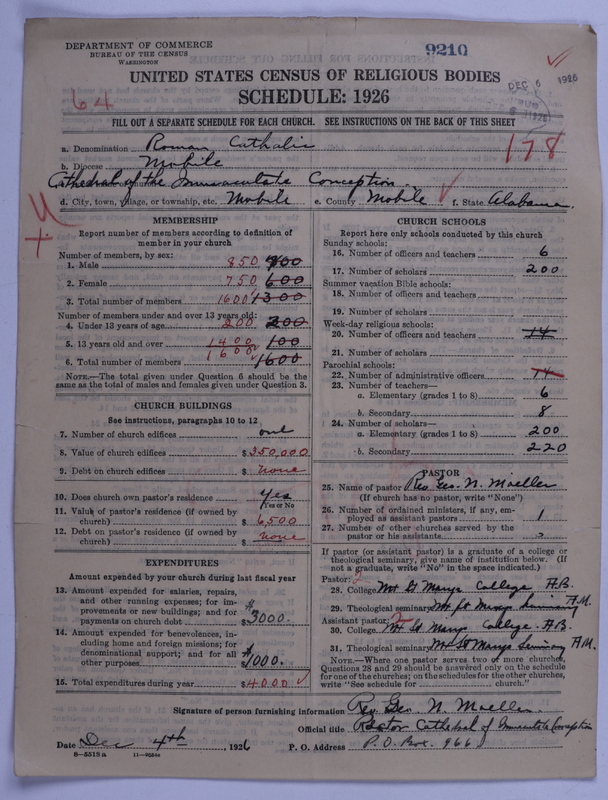 DEPARTMENT OF COMMERCE
BUREAU OF THE CENSUS
WASHINGTON
9210
DEC 6 1926
UNITED STATES CENSUS OF RELIGIOUS BODIES
SCHEDULE: 1926
64
FILL OUT A SEPARATE SCHEDULE FOR EACH CHURCH. SEE INSTRUCTIONS ON THE BACK OF THIS SHEET
178
a. Denomination Roman Catholic
b. Diocese Mobile
Cathedral of the Immaculate Conception
d. City, town, village, or township, etc. Mobile e. County Mobile f. State Alabama
MEMBERSHIP
Report number of members according to definition of
member in your church
Number of members, by sex:
1. Male 850 700
2. Female 750 600
3. Total number of members 1600 1300
Number of members under and over 13 years old:
4. Under 13 years of age 200 200
5. 13 years old and over 1400 100
6. Total number of members 1600 1600
NOTE.—The total given under Question 6 should be the
same as the total of males and females given under Question 3.
CHURCH BUILDINGS
See instructions, paragraphs 10 to 12
7. Number of church edifices one
8. Value of church edifices $350,000
9. Debt on church edifices $ none
10. Does church own pastor's residence Yes
Yes or No
11. Value of pastor's residence (if owned by
church) $ 6,500
12. Debt on pastor's residence (if owned by
church) $ none
EXPENDITURES
Amount expended by your church during last fiscal year
13. Amount expended for salaries, repairs,
and other running expenses; for im-
provements or new buildings; and for
payments on church debt $3000.
14. Amount expended for benevolences, in-
cluding home and foreign missions; for
denominational support; and for all
other purposes $1000.
15. Total expenditures during year $4000
CHURCH SCHOOLS
Report here only schools conducted by this church
Sunday schools:
16. Number of officers and teachers 6
17. Number of scholars 200
Summer vacation Bible schools:
18. Number of officers and teachers
19. Number of scholars
Week-day religious schools:
20. Number of officers and teachers 14
21. Number of scholars
Parochial schools:
22. Number of administrative officers 14
23. Number of teachers—
a. Elementary (grades 1 to 8) 6
b. Secondary 8
24. Number of scholars—
a. Elementary (grades 1 to 8) 200
b. Secondary 220
PASTOR
25. Name of pastor Rev. Geo. N. Moeller
(If church has no pastor, write "None")
26. Number of ordained ministers, if any, em-
ployed as assistant pastors 1
27. Number of other churches served by the
pastor or his assistants
If pastor (or assistant pastor) is a graduate of a college or
theological seminary, give name of institution below. (If
not a graduate, write "No" in the space indicated.)
Pastor: 2
28. College Mt St Marys College A.B.
29. Theological seminary Mt St Marys Seminary A.M.
Assistant pastor: 2
30. College Mt St Marys College A.B.
31. Theological seminary Mt St Marys Seminary A.M.
NOTE.—Where one pastor serves two or more churches,
Questions 28 and 29 should be answered only on the schedule
for one of the churches; on the schedules for the other churches,
write "See schedule for church.
Signature of person furnishing information Rev. Geo N. Moeller
Official title Rector Cathedral of Immaculate Conception
Date Dec 4th, 1926 P. O. Address P.O. Box 966
8—5518a 11—9554